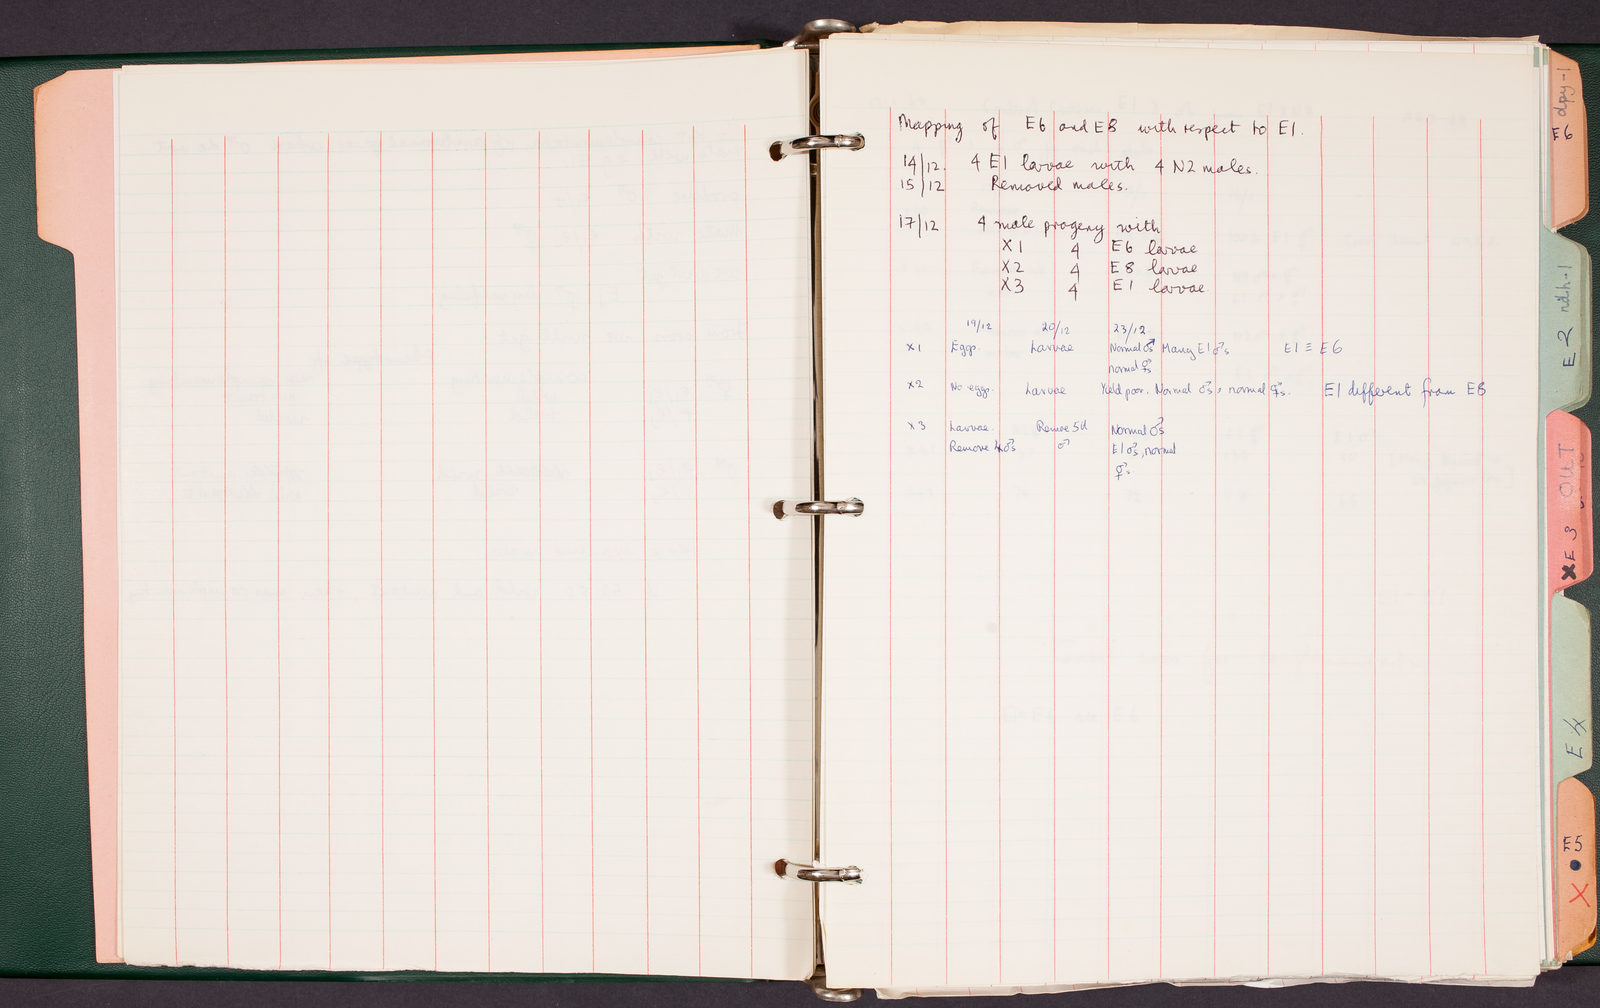 Mapping of E6 and E8 with respect to E1.
14/12. 4 E1 larvae with 4 N2 males.
15/12 Removed males.
17/12 4 male progeny with
X1 4 E6 larvae
X2 4 E8 larvae
X3 4 E1 larvae.
19/12 20/12 23/12
X1 Eggs. Larvae Normal ♂s Many E1 ♂s E1 ≡ E6
normal ⚥s
X2 No eggs. Larvae Yield poor. Normal ♂s, normal ⚥s. E1 different from E8
X3 Larvae. Normal ♂s
Remove 4 ♂s ♂ E1 ♂s, normal
⚥s
E6 dpy-1
E2
XE3 OUT
E4
E5
X